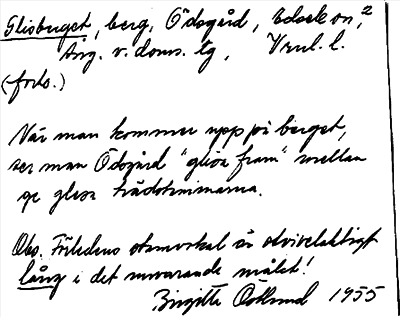 Glisberget, berg, Ödsgård, Edsek on,²
Äng. v. doms. lg, Vrml. l.
(forts.)
När man kommer upp på berget,
ser man Ödsgård "glisa fram" mellan
ge glesa trädstammarna.
Obs. Förledens stamvokal är otvivelaktigt
lång i det nuvarande målet!
Birgitta Östlund 1955